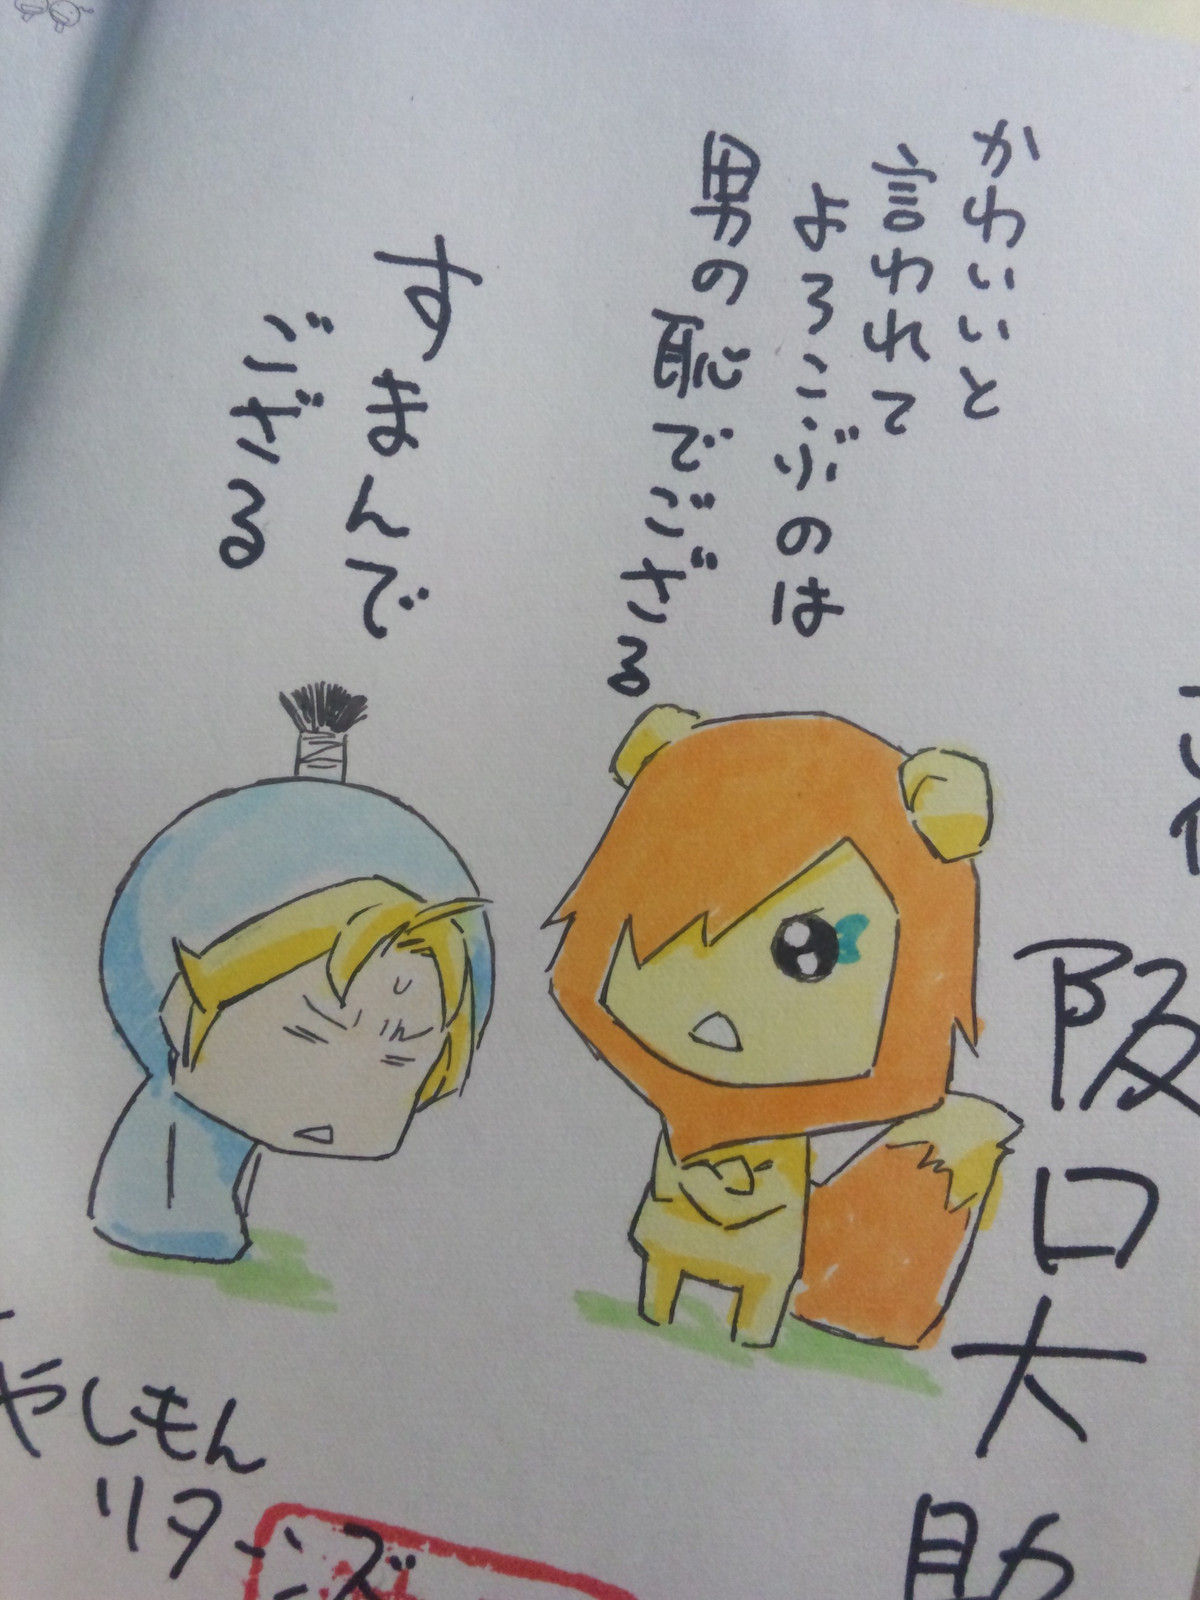 かわいいと
言われて
よろこぶのは
男の恥でござる
すまんで
ござる
阪口大助
やしもん
リターンズ